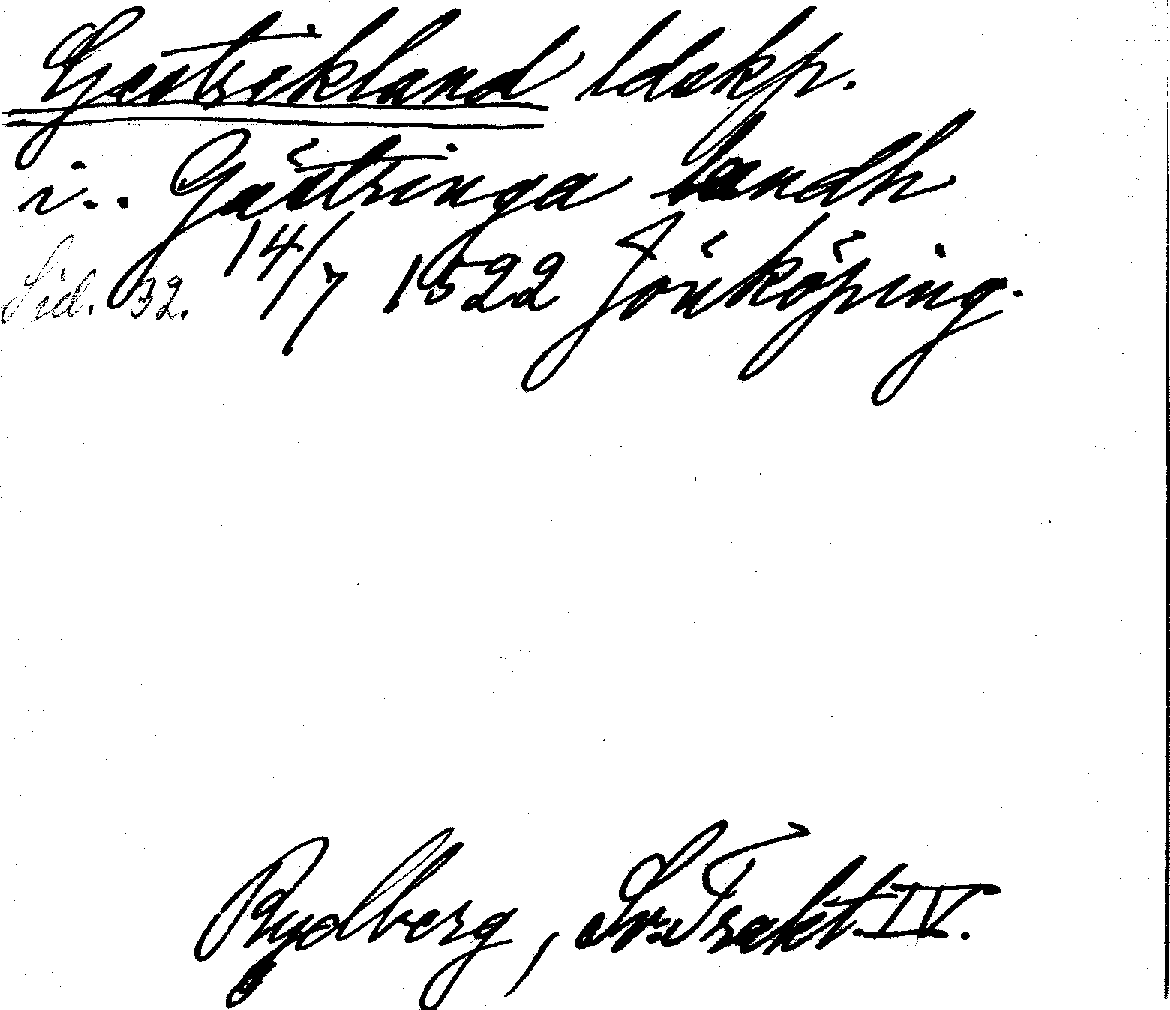 Gestrikland ldskp.
i.. Gästringa landh
Sid. 32. 14/7 1522 Jönköping.
Rydberg, Sv. Trakt. IV.